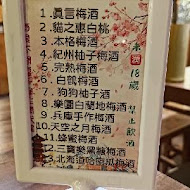 1.眞言梅酒
2.貓之惠白桃
3.本格梅酒
4.紀州柚子梅酒
5.完熟梅酒
6.白鶴梅酒
7.狗狗柚子酒
8.樂園白蘭地梅酒
9.兵庫手作梅酒
10.天空之月梅酒
11.蜂蜜梅酒
12.三寶樂黑糖梅酒
13.北海道哈密瓜梅酒
未滿18歲
禁止飲酒